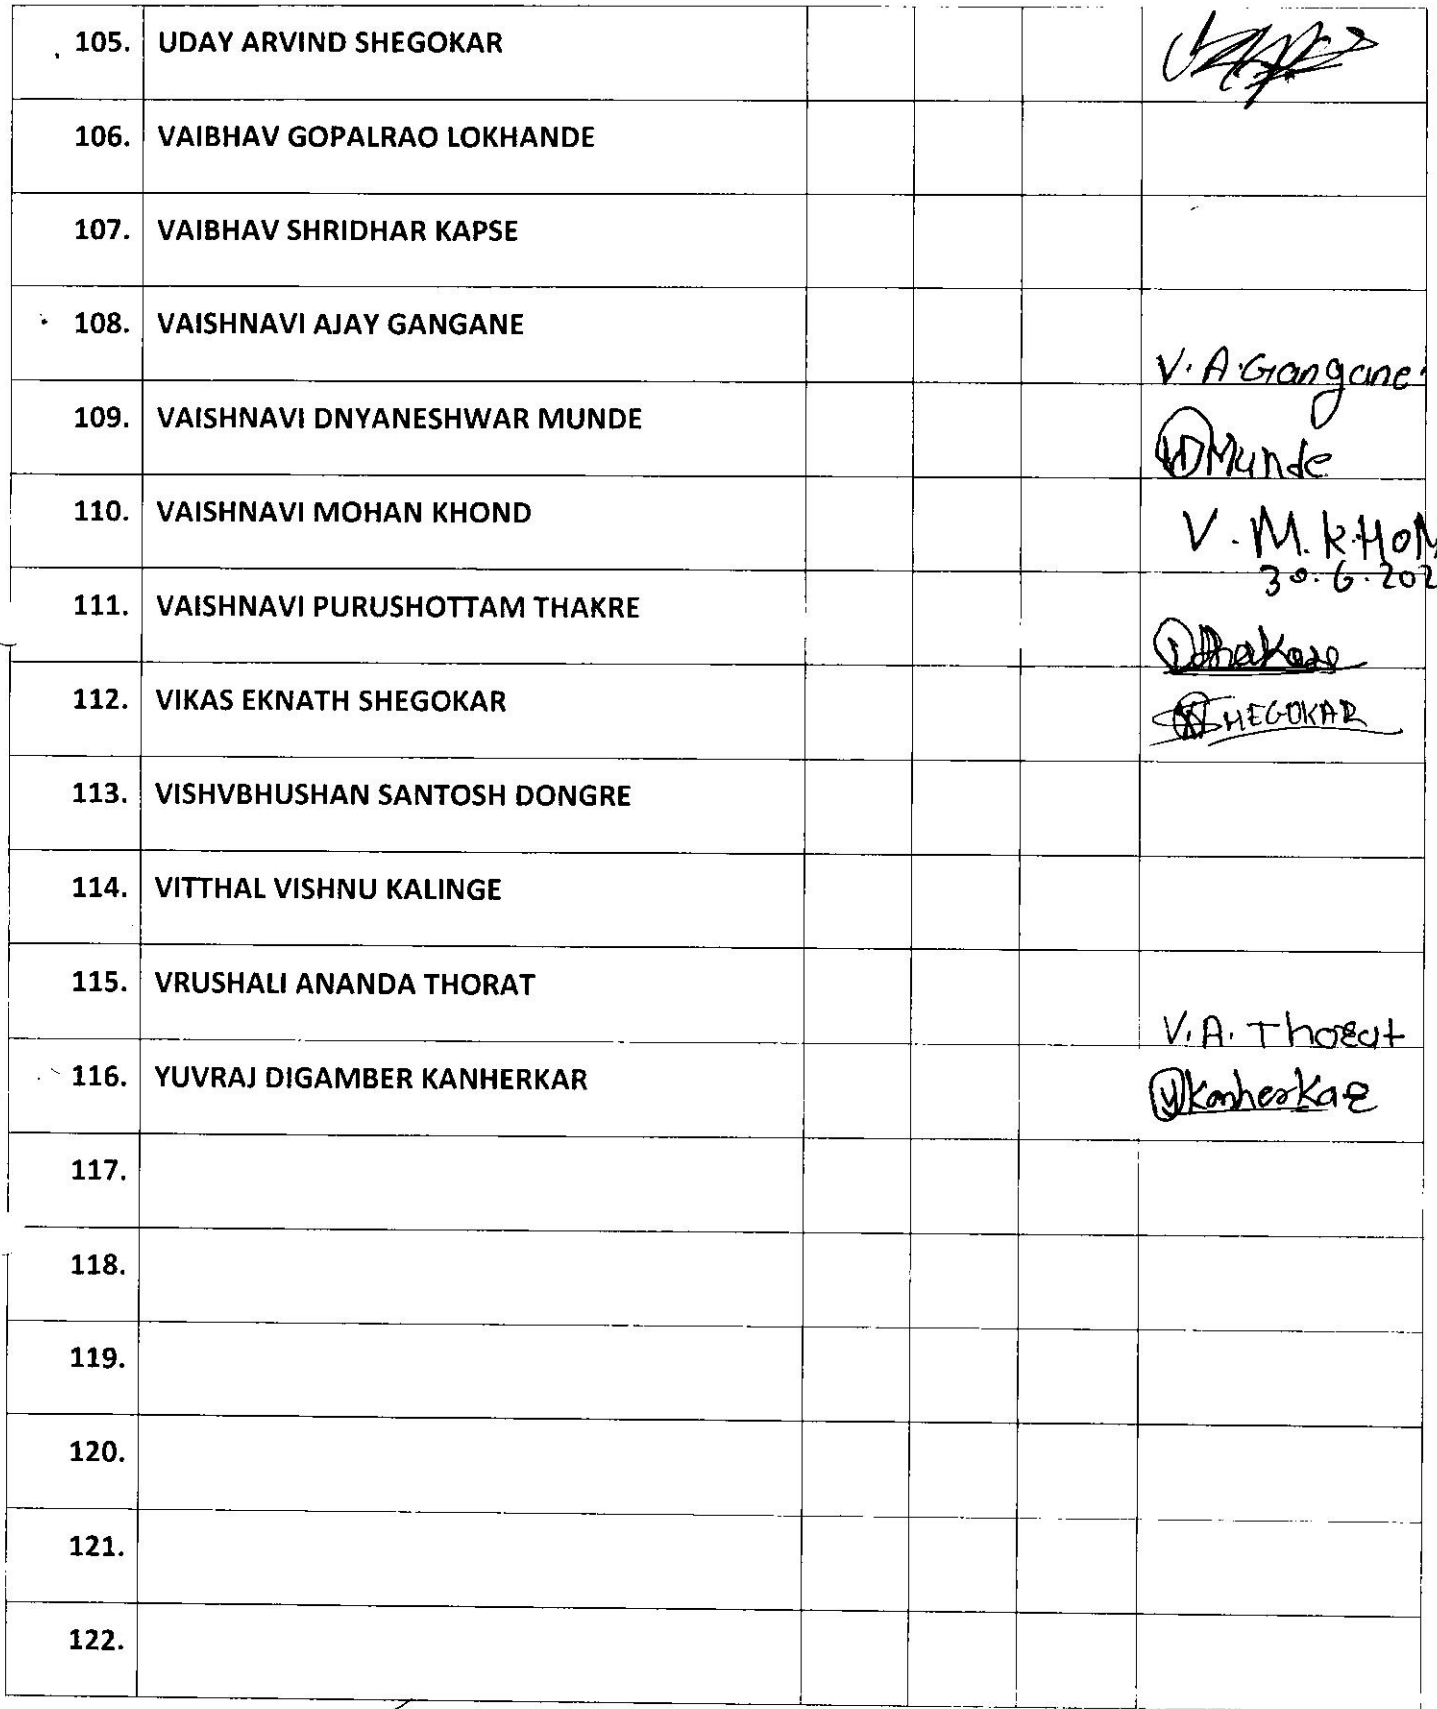 105. UDAY ARVIND SHEGOKAR
106. VAIBHAV GOPALRAO LOKHANDE
107. VAIBHAV SHRIDHAR KAPSE
108. VAISHNAVI AJAY GANGANE V. A. Gangane.
109. VAISHNAVI DNYANESHWAR MUNDE Munde
110. VAISHNAVI MOHAN KHOND V. M. KHON
30.6.202
111. VAISHNAVI PURUSHOTTAM THAKRE
112. VIKAS EKNATH SHEGOKAR SHEGOKAR
113. VISHVBHUSHAN SANTOSH DONGRE
114. VITTHAL VISHNU KALINGE
115. VRUSHALI ANANDA THORAT V. A. Thorat
116. YUVRAJ DIGAMBER KANHERKAR Y Kanherkar
117.
118.
119.
120.
121.
122.